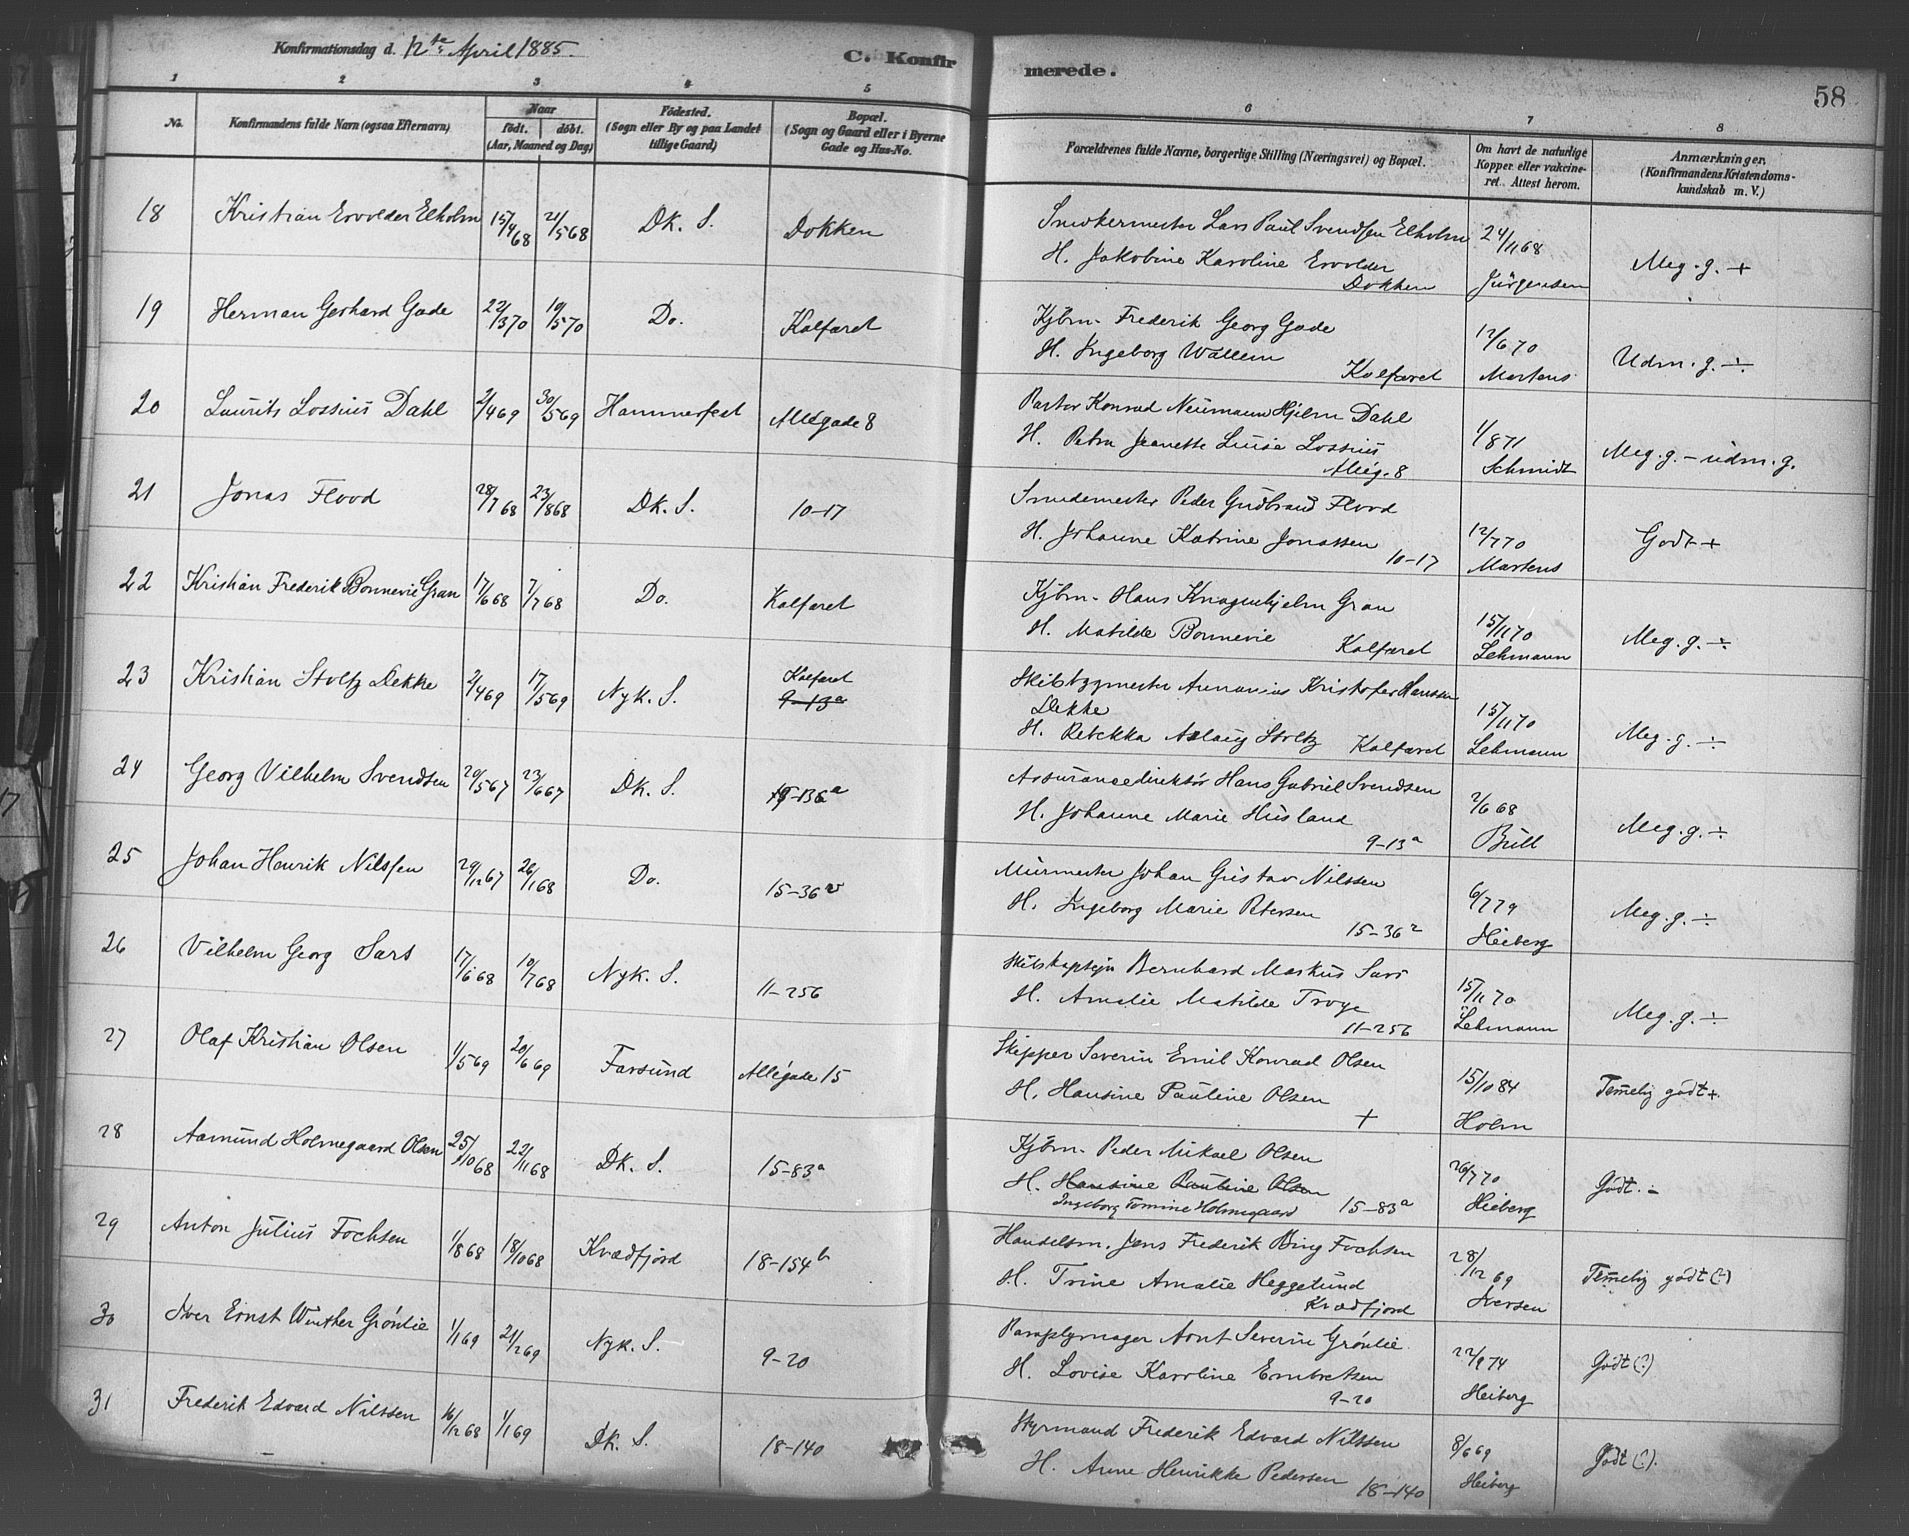 Konfirmationsdag d. 12te April 1885.
C. Konfirmerede.
58
1 2 3 4 5 6 7 8
No. | Konfirmandens fulde Navn (ogsaa Efternavn) | Naar født. døbt. (Aar, Maaned og Dag) | Fødested. (Sogn eller By og paa Landet tillige Gaard) | Bopæl. (Sogn og Gaard eller i Byerne Gade og Hus-No. | Forældrenes fulde Navne, borgerlige Stilling (Næringsvei) og Bopæl. | Om havt de naturlige Kopper eller vakcineret. Attest herom. | Anmærkninger, (Konfirmandens Kristendomskundskab m. V.)
18 Kristian Ervolder Elholm 15/4 68 21/5 68 Dk. S. Dokken Snedkermester Lars Paul Svendsen Elholm 24/11 68
H. Jakobine Karoline Ervolder
Dokken Jürgensen Meg. g. +
19 Herman Gerhard Gade 22/3 70 19/5 70 Do. Kalfaret Kjbm. Frederik Georg Gade 12/6 70
H. Ingeborg Wallem
Kalfaret Martens Udm. g. ÷
20 Laurits Lossius Dahl 2/4 69 30/5 69 Hammerfest Allégade 8 Pastor Konrad Neumann Hjelm Dahl 1/8 71
H. Petra Jeanette Luise Lossius
Allég. 8 Schmidt Meg. g. - udm. g.
21 Jonas Flood 28/7 68 23/8 68 Dk. S. 10-17 Smedemester Peder Gudbrand Flood 12/7 70
H. Johanne Katrine Jonassen
10-17 Martens Godt +
22 Kristian Frederik Bonnevie Gran 17/6 68 7/7 68 Do. Kalfaret Kjbm. Hans Knagenhjelm Gran 15/11 70
H. Matilde Bonnevie
Kalfaret Lehmann Meg. g. ÷
23 Kristian Stoltz Dekke 2/4 69 17/5 69 Nyk. S. Kalfaret 9-13a Skibsbygmester Annanias Kristofer Hanssen
Dekke 15/11 70
H. Rebekka Aslaug Stoltz Kalfaret Lehmann Meg. g. ÷
24 Georg Vilhelm Svendsen 20/5 67 23/6 67 Dk. S. 9-13a Assurancedirektör Hans Gabriel Svendsen 2/6 68
H. Johanne Marie Husland
9-13a Büll Meg. g. ÷
25 Johan Henrik Nilssen 29/12 67 26/1 68 Do. 15-36 Murmester Johan Gustav Nilssen 6/7 79
H. Ingeborg Marie Petersen
15-36 Heiberg Meg. g. ÷
26 Vilhelm Georg Sars 17/6 68 10/7 68 Nyk. S. 11-256 Skibskaptejn Bernhard Markus Sars 15/11 70
H. Amalie Matilde Troye
11-256 Lehmann Meg. g. ÷
27 Olaf Kristian Olsen 1/5 69 20/6 69 Farsund Allégade 15 Skipper Severin Emil Konrad Olsen 15/10 84
H. Hansine Pauline Olsen
+ Holm Temmelig godt +
28 Aamund Holmegaard Olsen 25/10 68 22/11 68 Dk. S. 15-83a Kjbm. Peder Mikael Olsen 26/7 70
H. Hansine Pauline Olsen
Ingeborg Tomine Holmegaard 15-83a Heiberg Godt. ÷
29 Anton Julius Fochsen 1/8 68 18/10 68 Kvædfjord 18-154b Handelsm. Jens Frederik Bing Fochsen 28/12 69
H. Trine Amalie Heggelund
Kvædfjord Iversen Temmelig godt (÷)
30 Iver Ernst Winther Grönlie 1/1 69 21/2 69 Nyk. S. 9-20 Paraplymager Arnt Severin Grönlie 22/9 74
H. Lovise Karoline Embretsen
9-20 Heiberg Godt (÷)
31 Frederik Edvard Nilssen 16/12 68 1/1 69 Dk. S. 18-140 Styrmand Frederik Edvard Nilssen 8/6 69
H. Anne Henrikke Pedersen 18-140 Heiberg Godt (÷).